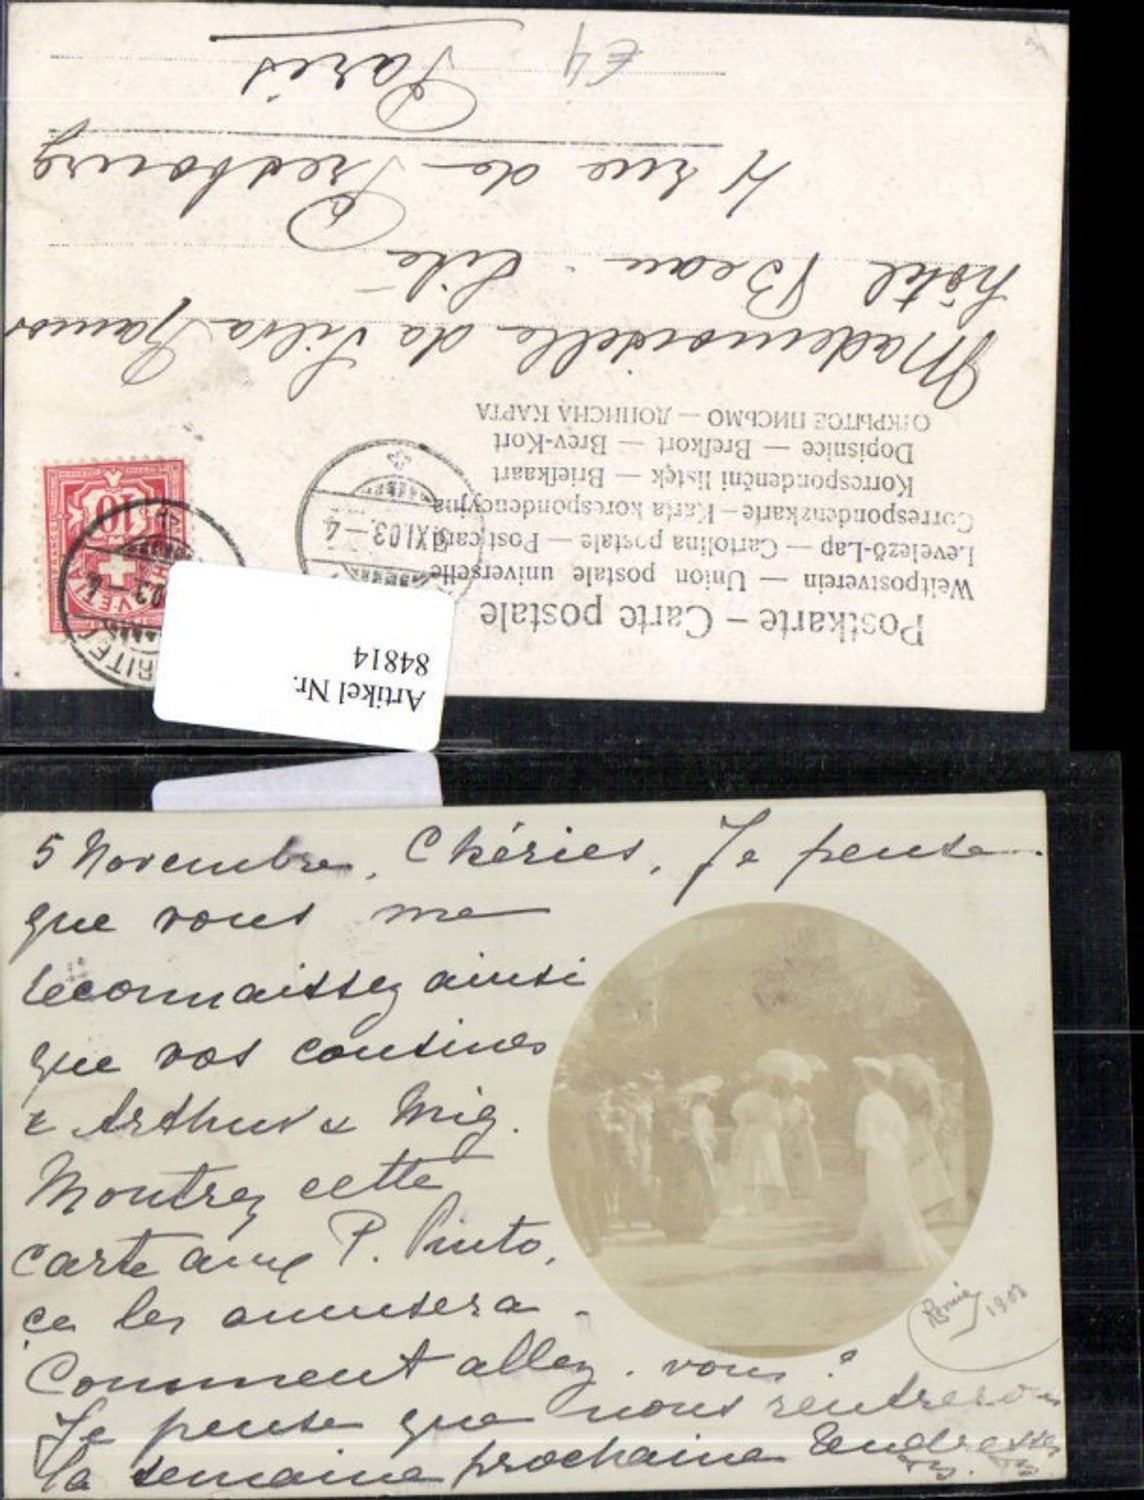 Postkarte – Carte postale
Weltpostverein — Union postale universelle
Levelező-Lap — Cartolina postale — Post card
Correspondenzkarte — Karta korespondencyjna
Korrespondenční listek — Briefkaart
Dopisnice — Brefkort — Brev-Kort
ОТКРЫТОЕ ПИСЬМО — ДОПИСНА КАРТА
XI.03 – 4
10
03 – 4
Artikel Nr.
84814
Mademoiselle da Silva Ramos
hôtel Beau-Site
4 rue de Presbourg
Paris
€4
5 Novembre, Chéries, Je pense
que vous me
reconnaissez ainsi
que vos cousines
& Arthur & Mig.
Montrez cette
carte aux P. Pinto,
ça les amusera -
Comment allez-vous?
Je pense que nous rentrerons
la semaine prochaine Tendresses
1903